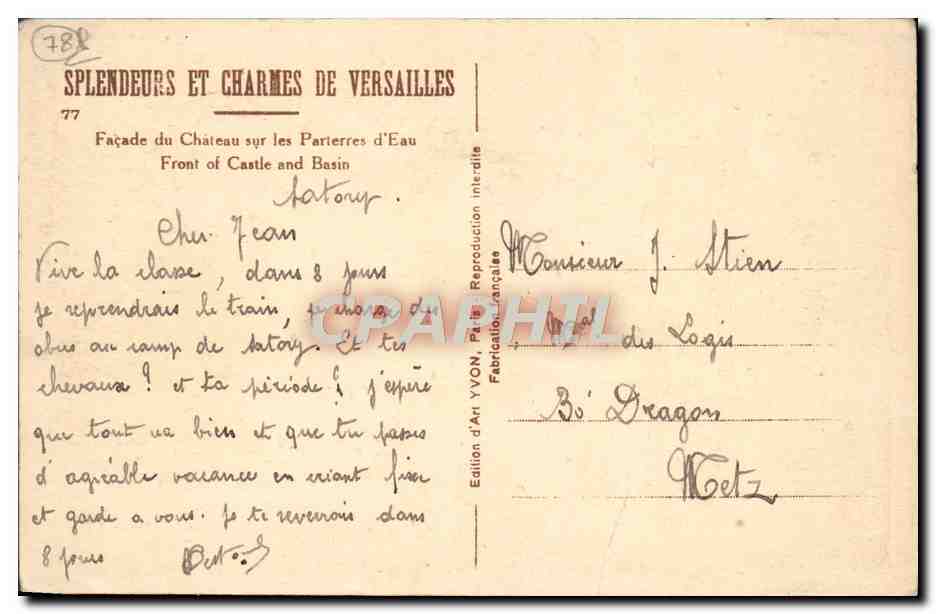 78
SPLENDEURS ET CHARMES DE VERSAILLES
77
Façade du Château sur les Parterres d'Eau
Front of Castle and Basin
Satory.
Cher Jean
Vive la classe, dans 8 jours
je reprendrais le train, je charge des
obus au camp de Satory. Et tes
chevaux ? et ta période ? j'espère
que tout va bien et que tu passes
d'agréable vacance en criant fixe
et garde a vous. Je te reverrais dans
8 jours
Edition d'Art YVON, Paris. Reproduction interdite
Fabrication française
Monsieur J. Stien
Mal des Logis
30 Dragon
Metz
CPAPHIL